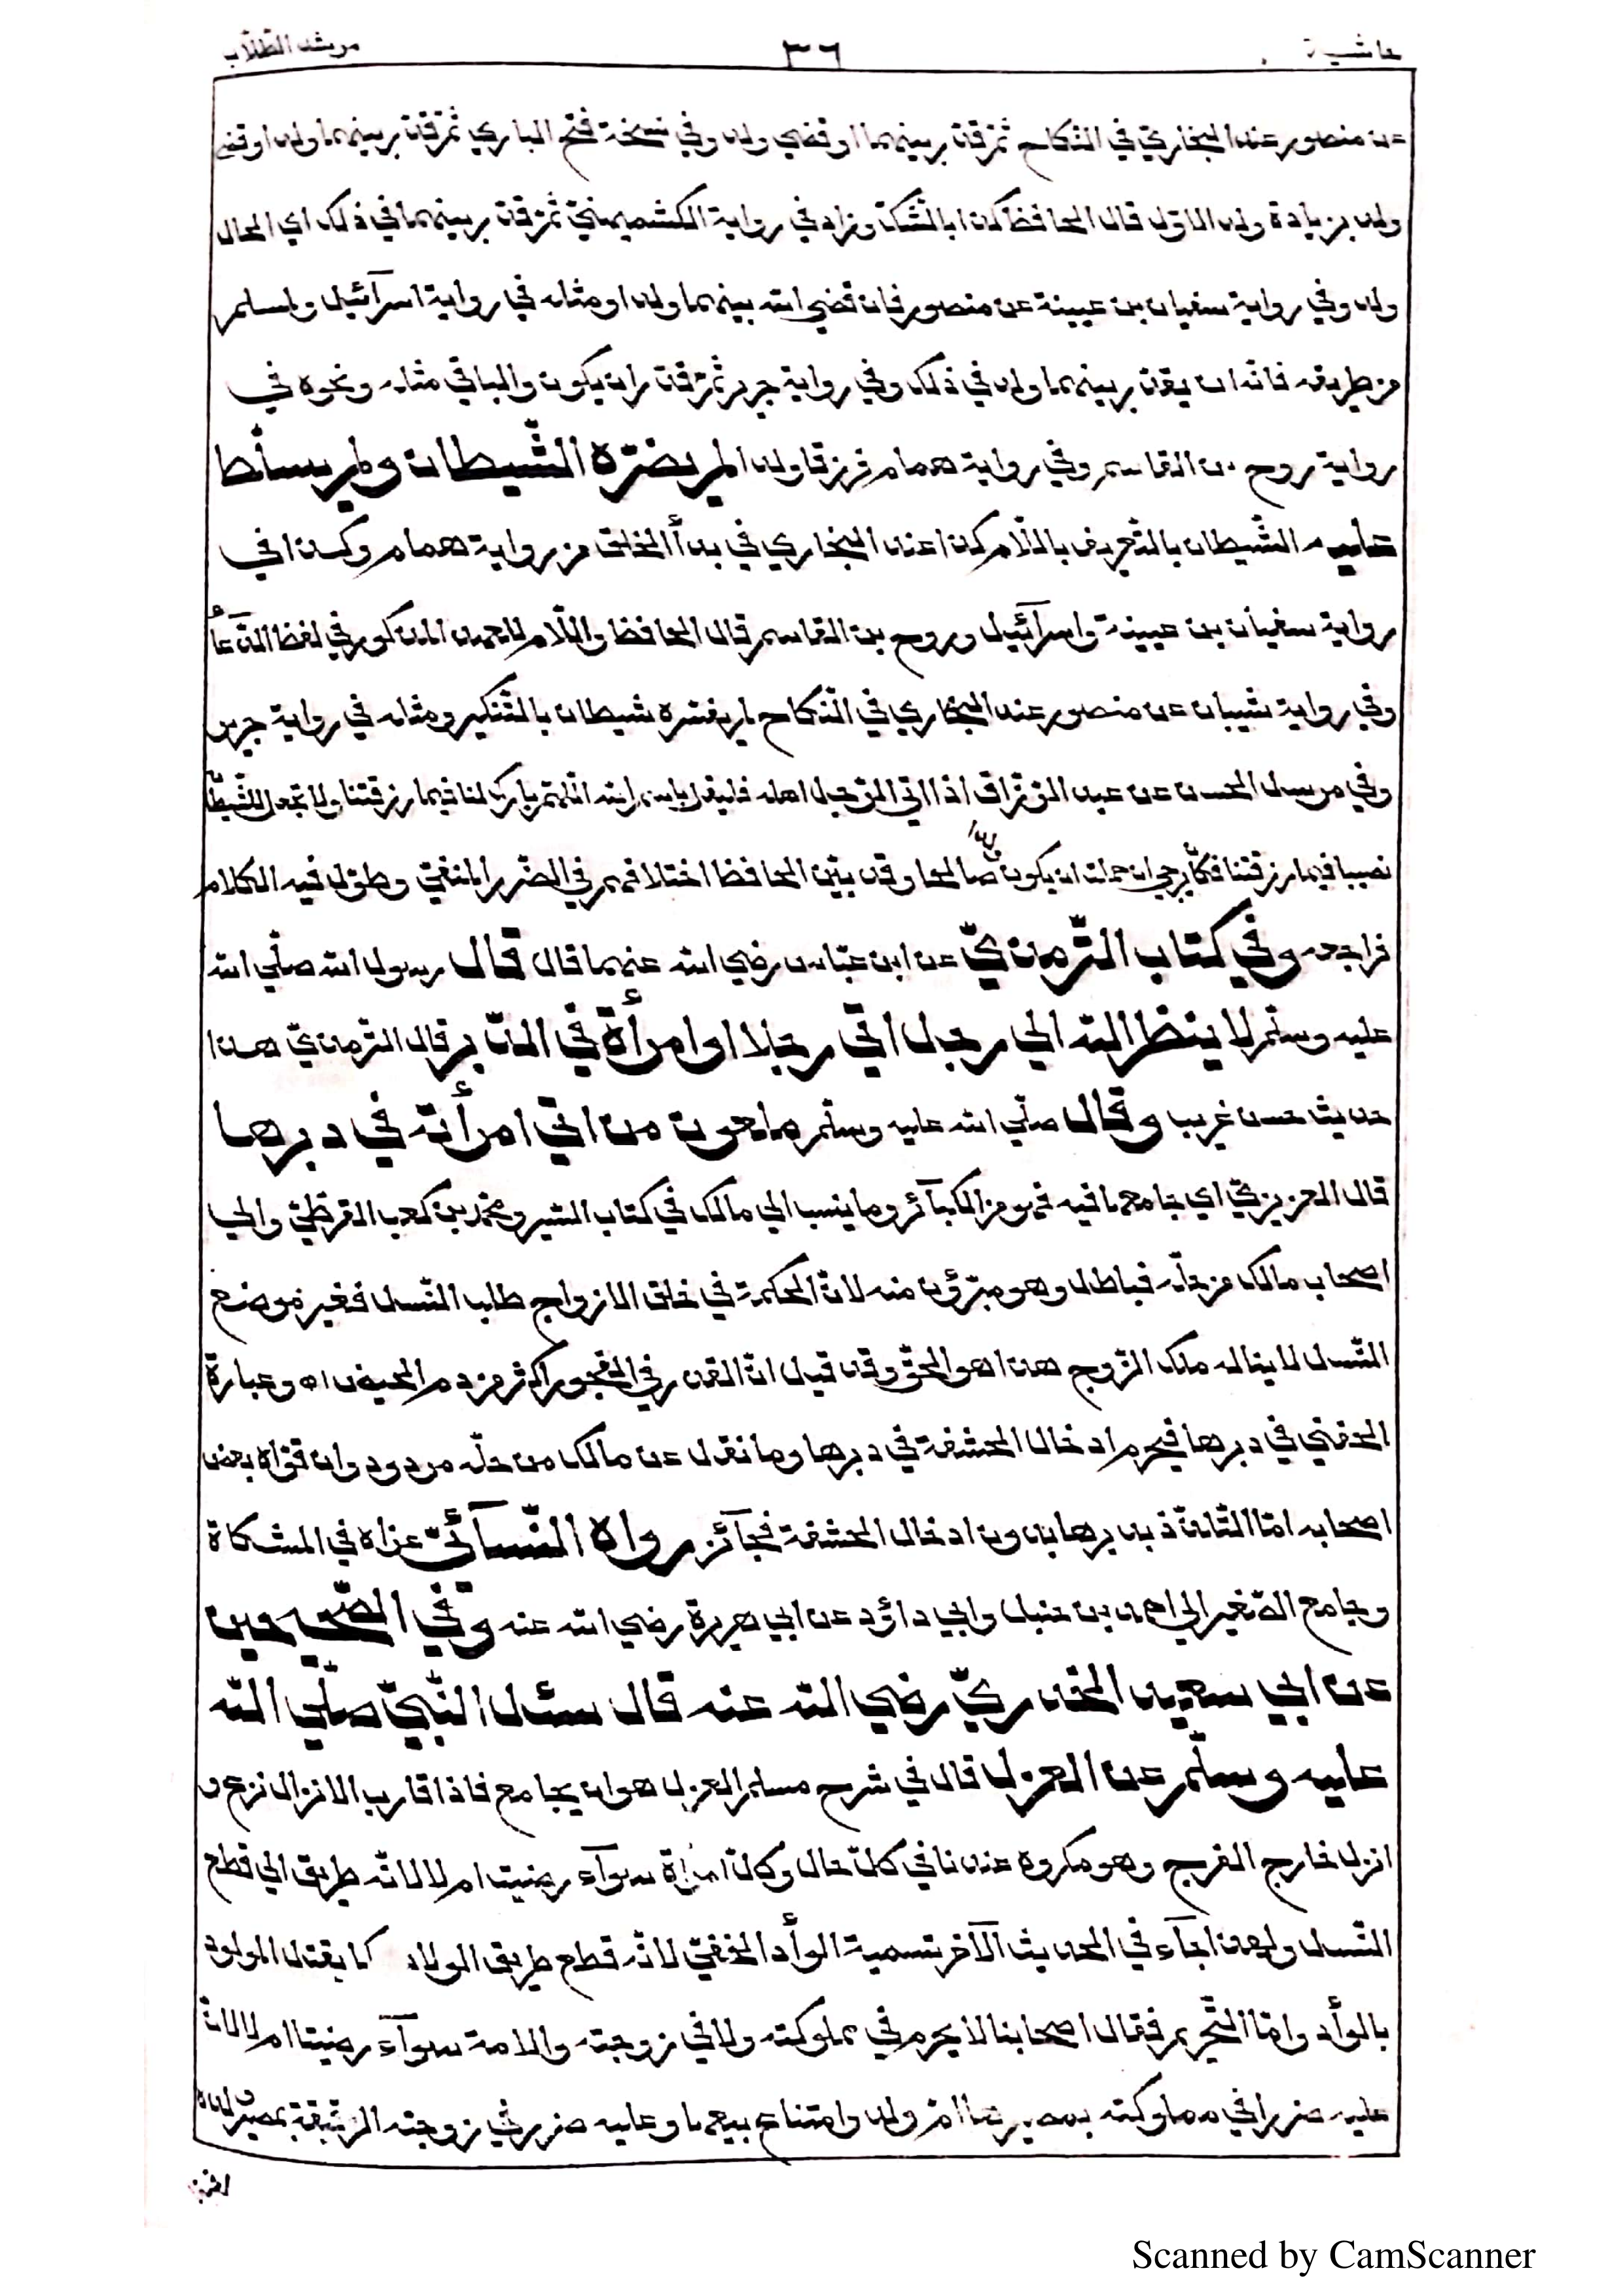 حاشية ٣٦ مرشد الطلاب
عن منصور عند البخاري في النكاح ثم قدر بينهما او قضي ولد وفي نسخة فتح الباري ثم قدر بينهما ولد او قضي
ولد بزيادة ولد الاول قال الحافظ كذا بالشك وزاد في رواية الكشميهني ثم قدر بينهما في ذلك اي الحال
ولد وفي رواية سفيان بن عيينة عن منصور فان قضي الله بينهما ولدا ومثله في رواية اسرآئيل ولمسلم
من طريقه فانه ان يقدر بينهما ولد في ذلك وفي رواية جرير ثم قدر ان يكون والباقي مثله ونحوه في
رواية روح بن القاسم وفي رواية همام فرزقا ولدا لم يضرّه الشّيطان ولم يسلّط
عليه الشّيطان بالتّعريف باللّام كذا عند البخاري في بدأ الخلق من رواية همام وكذا في
رواية سفيان بن عيينة واسرآئيل وروح بن القاسم قال الحافظ واللّام للعهد المذكور في لفظ الدّعآء
وفي رواية شيبان عن منصور عند البخاري في النّكاح لم يضرّه شيطان بالتّنكير ومثله في رواية جرير
وفي مرسل الحسن عن عبد الرزاق اذا اتي الرّجل اهله فليقل باسم الله اللّهمّ بارك لنا فيما رزقتنا ولا تجعل للشّيطان
نصيبا فيما رزقتنا فكان يرجي ان حملت ان يكون ولدا صالحا وقد بيّن الحافظ اختلافهم في الضّرر المنفيّ وطوّل فيه الكلام
فراجعه وفي كتاب التّرمذيّ عن ابن عبّاس رضي الله عنهما قال قال رسول الله صلّي الله
عليه وسلّم لا ينظر الله الي رجل اتي رجلا او امرأة في الدّبر قال التّرمذيّ هذا
حديث حسن غريب وقال صلّي الله عليه وسلّم ملعون من اتي امرأته في دبرها
قال العزيزيّ اي جامعها فيه فهو من الكبآئر وما ينسب الي مالك في كتاب السّير ومحمّد بن كعب القرظيّ والي
اصحاب مالك من حلّه فباطل وهو مبرّؤن منه لانّ الحكمة في خلق الازواج طلب النّسل فغير موضع
النّسل لا يناله ملك الزّوج هذا هو الحقّ وقد قيل انّ القذر في النجو اكثر من دم الحيض اه وعبارة
الحفني في دبرها فيحرم ادخال الحشفة في دبرها وما نقل عن مالك من حلّه مردود وان قوّاه بعض
اصحابه امّا التّلذّذ بدبرها بدون ادخال الحشفة فجآئز رواه النّسآئيّ عزاه في المشكاة
وجامع الصّغير الي احمد بن حنبل وابي داؤد عن ابي هريرة رضي الله عنه وفي الصّحيحين
عن ابي سعيد الخدريّ رضي الله عنه قال سئل النّبيّ صلّي الله
عليه وسلّم عن العزل قال في شرح مسلم العزل هو ان يجامع فاذا قارب الانزال نزع و
انزل خارج الفرج وهو مكروه عندنا في كلّ حال وكلّ امرأة سوآء رضيت ام لا لانّه طريق الي قطع
النّسل ولهذا جآء في الحديث الآخر تسمية الوأد الخفيّ لانّه قطع طريق الولاد كما يقتل المولود
بالوأد وامّا التّحريم فقال اصحابنا لا يحرم في مملوكته ولا في زوجته والامة سوآء رضيتا ام لا لانّ
عليه ضررا في مملوكته بمصيرها امّ ولد وامتناع بيعها وعليه ضرر في زوجته الرّقيقة بمصير ولده
Scanned by CamScanner